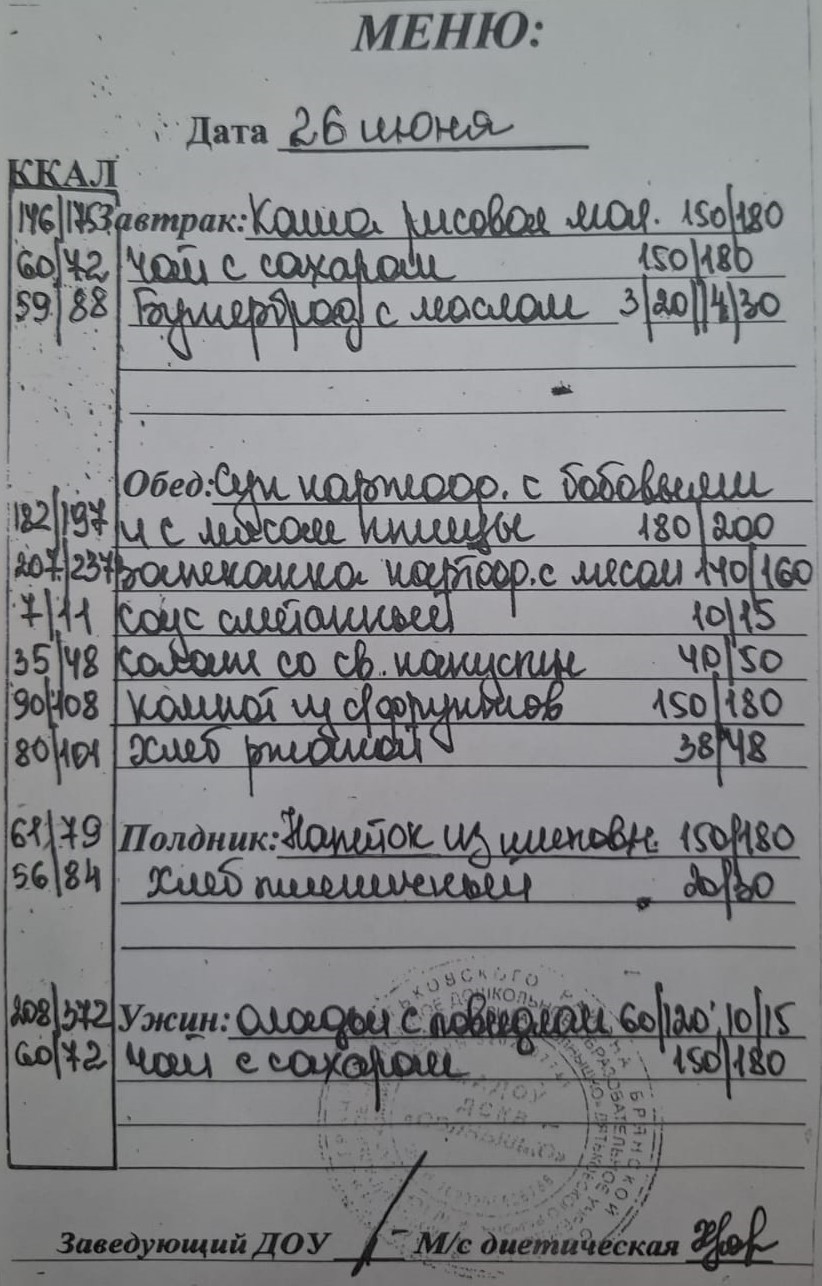 МЕНЮ:
Дата 26 июня
ККАЛ
146/175 Завтрак: Каша рисовая мол. 150/180
60/72 Чай с сахаром 150/180
59/88 Бутерброд с маслом 3/20//4/30
Обед: Суп картоф. с бобовыми
182/197 и с мясом птицы 180/200
207/237 Запеканка картоф. с мясом 140/160
7/11 Соус сметанный 10/15
35/48 Салат со св. капусты 40/50
90/108 Компот из с/фруктов 150/180
80/101 Хлеб ржаной 38/48
61/79 Полдник: Напиток из шиповн. 150/180
56/84 Хлеб пшеничный 20/30
208/372 Ужин: Оладьи с повидлом 60/120, 10/15
60/72 Чай с сахаром 150/180
Заведующий ДОУ М/с диетическая